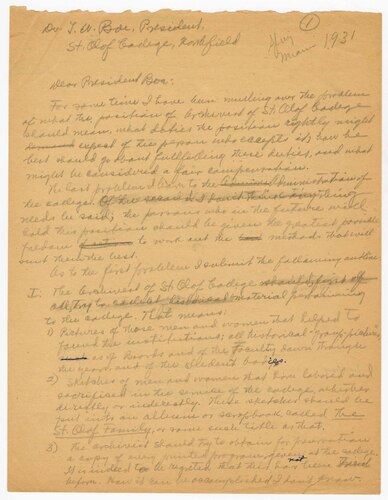 Dr. L. W. Boe, President,
St. Olaf College, Northfield
1
1931
Dear President Boe:
For some time I have been mulling over the problem
of what the position of Archivist of St. Olaf College
should mean, what duties the position rightly might
expect of the person who accepts it, how he
best should go about fulfilling these duties, and what
might be considered a fair compensation.
The last problem I leave to the Administration of
the college. Of the second
needs be said; the persons who in the future will
hold this position should be given the greatest possible
freedom to work out the methods that will
suit them the best.
As to the first problem I submit the following outline
I. The Archivist of St. Olaf College should first of
all try to collect historical material pertaining
to the college. That means:
1) Pictures of those men and women that helped to
found the institution; all historical "group pictures",
as of Boards and of the Faculty down through
the years, and of the student bodies.
2) Sketches of men and women that have labored and
sacrificed in the service of the college, whether
directly or indirectly. These sketches should be
put into an album or scrapbook, called The
St. Olaf Family, or some such title as that.
3) The archivist should try to obtain for preservation
a copy of every printed program given at the college.
It is indeed to be regretted that this has not been
before. How it can be accomplished I don't know.